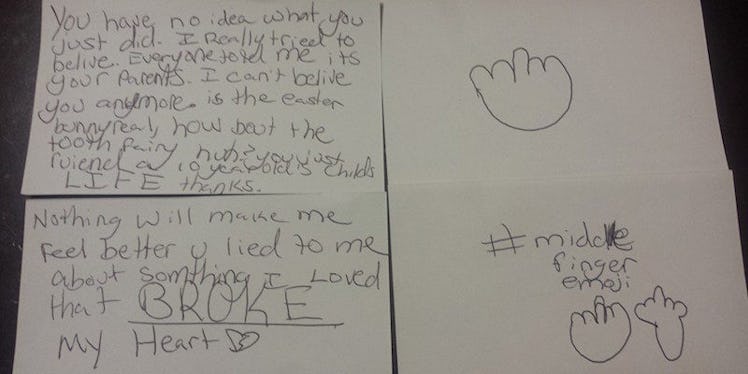 You have no idea what you
just did. I Really tried to
belive. Everyone told me its
your Parents. I can't belive
you anymore. is the easter
bunny real, how bout the
tooth fairy huh? you just
ruiened a 10 year old's childs
LIFE thanks.
Nothing will make me
feel better u lied to me
about somthing I Loved
that BROKE
My Heart
#middle
finger
emoji